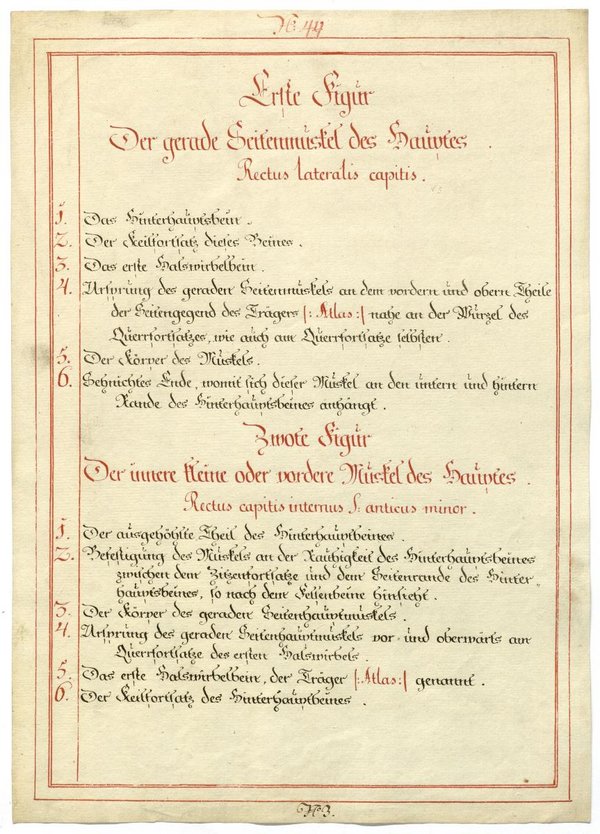 N: 44
Erste Figur
Der gerade Seitenmuskel des Hauptes.
Rectus lateralis capitis.
1. Das Hinterhauptsbein.
2. Der Keilfortsatz dieses Beines.
3. Das erste Halswirbelbein.
4. Ursprung des geraden Seitenmuskels an dem vordern und obern Theile
der Seitengegend des Trägers |: Atlas :| nahe an der Wurzel des
Querrfortsatzes, wie auch am Querrfortsatze selbsten.
5. Der Körper des Muskels.
6. Sehnichtes Ende, womit sich dieser Muskel an den untern und hintern
Rande des Hinterhauptsbeines anhängt.
Zwote Figur
Der innere kleine oder vordere Muskel des Hauptes.
Rectus capitis internus S. anticus minor.
1. Der ausgehöhlte Theil des Hinterhauptbeines.
2. Befestigung des Muskels an der Rauhigkeit des Hinterhauptsbeines
zwischen dem Zitzenfortsatze und dem Seitenrande des Hinter„
hauptsbeines, so nach dem Felsenbeine hinsieht.
3. Der Körper des geraden Seitenhauptmuskels.
4. Ursprung des geraden Seitenhauptmuskels vor- und oberwärts am
Querrfortsatze des ersten Halswirbels.
5. Das erste Halswirbelbein, der Träger |: Atlas :| genannt.
6. Der Keilfortsatz des Hinterhauptbeines.